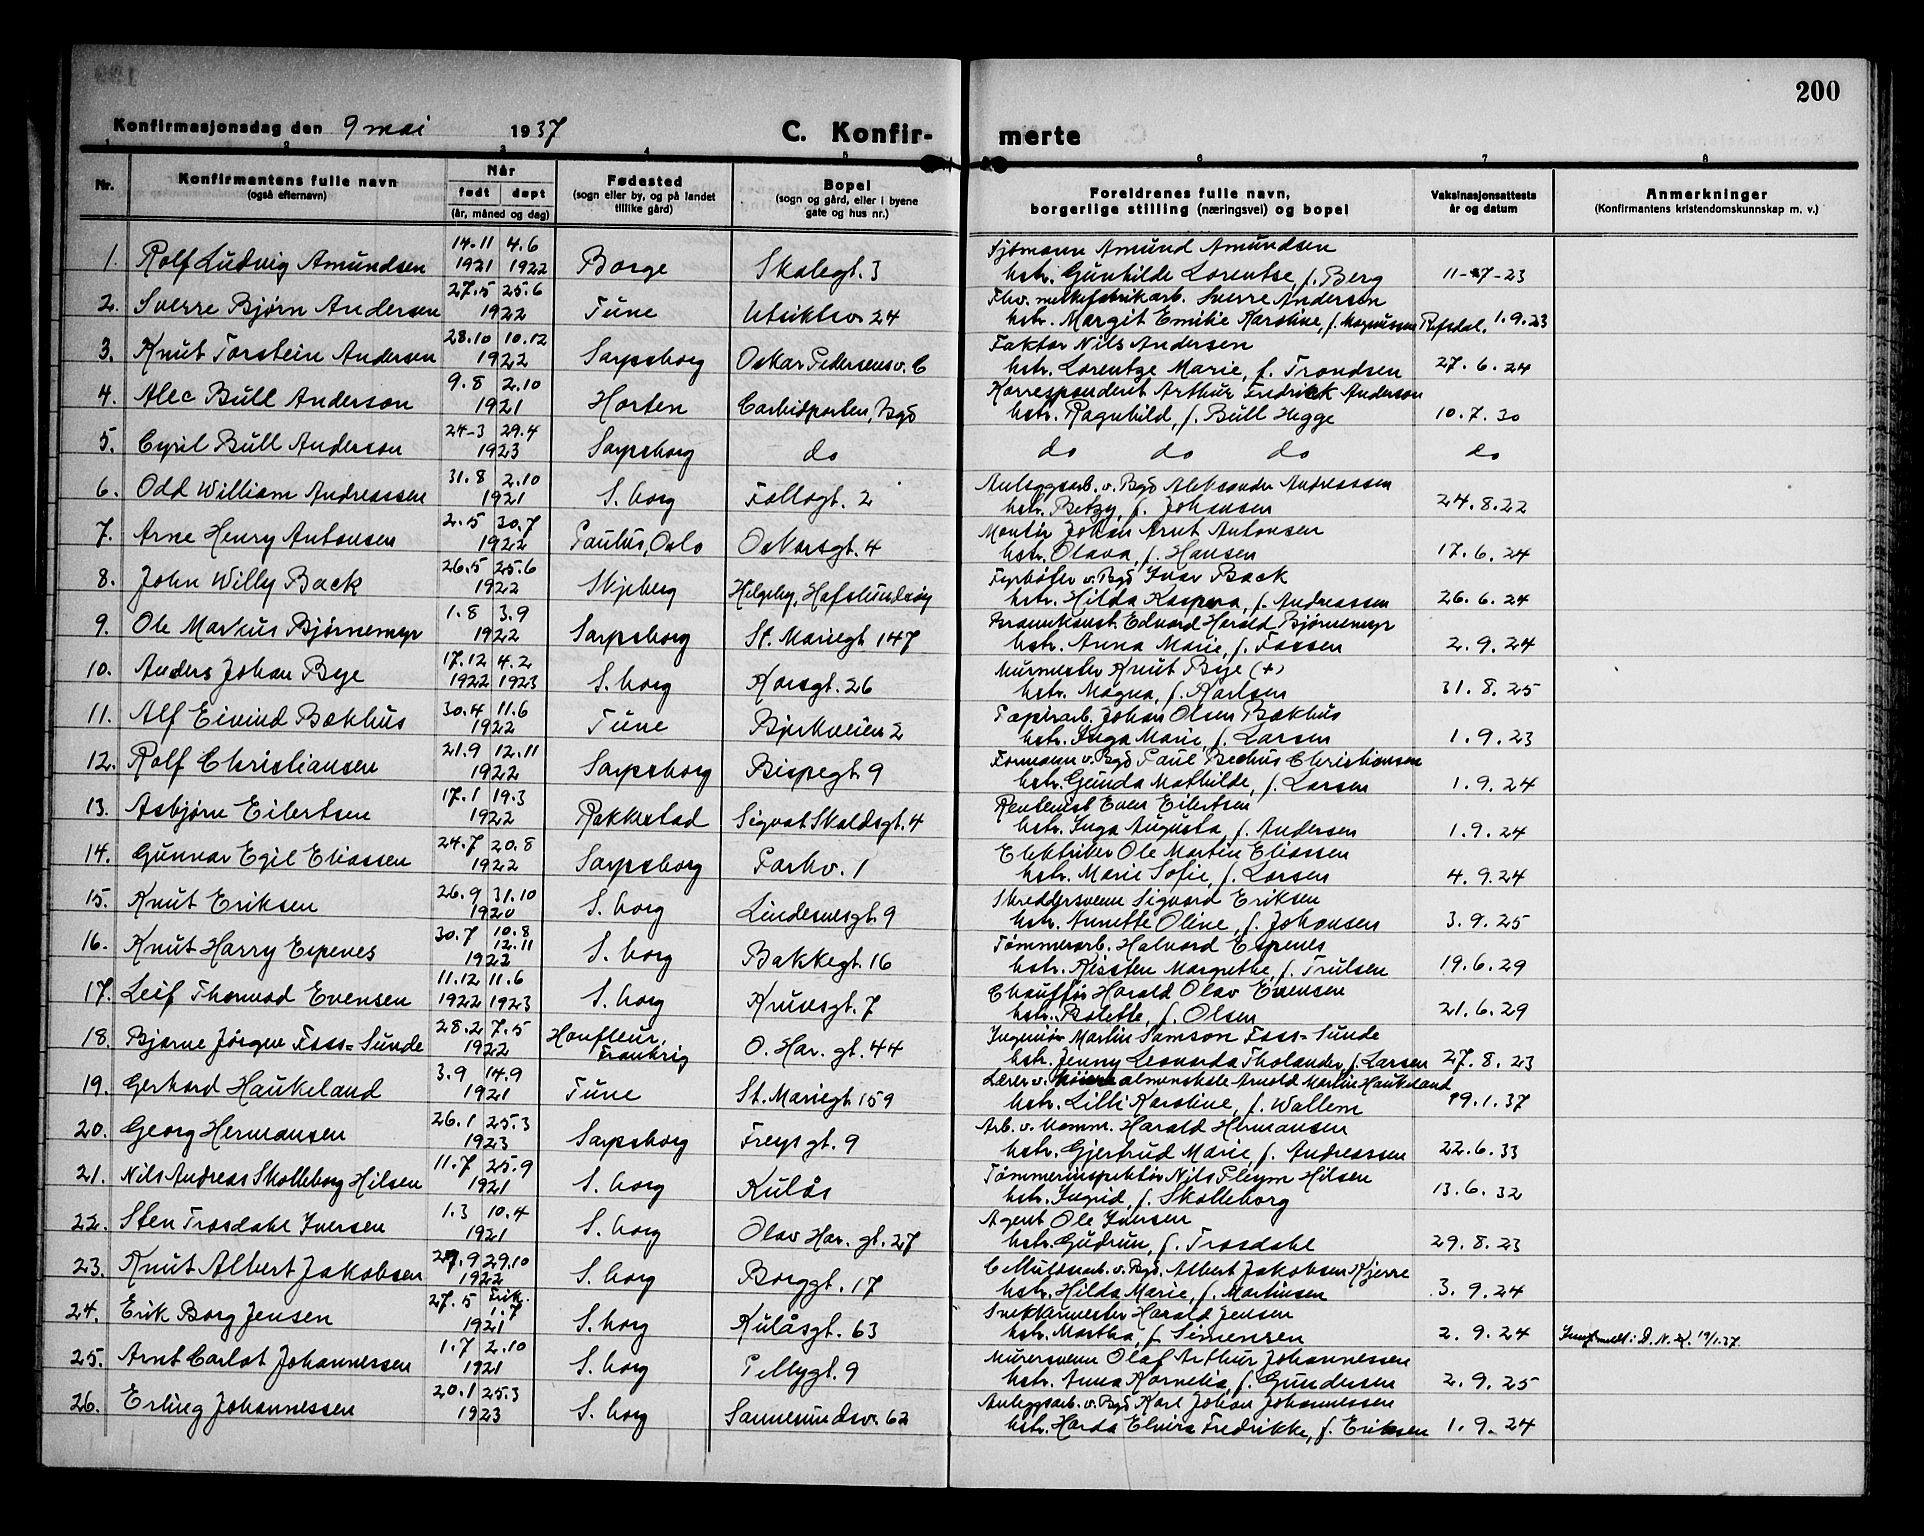 200
Konfirmasjonsdag den 9 mai 1937 C. Konfir- merte
1 2 3 4 5 6 7 8
Nr. Konfirmantens fulle navn (også efternavn) Når født døpt (år, måned og dag) Fødested (sogn eller by, og på landet tillike gård) Bopel (sogn og gård, eller i byene gate og hus nr.) Foreldrenes fulle navn, borgerlige stilling (næringsvei) og bopel Vaksinasjonsattests år og datum Anmerkninger (Konfirmantens kristendomskunnskap m. v.)
14.11 4.6 Sjømann Amund Amundsen
1. Rolf Ludvig Amundsen 1921 1922 Borge Skolegt. 3 hstr. Gunhilde Lorentse, f. Berg 11-7-23
27.5 25.6 Fhv. merkefabrikarb. Sverre Andersen
2. Sverre Bjørn Andersen 1922 Tune Utsiktsv. 24 hstr. Margit Emilie Karoline, f. Magnussen Refsdal. 1.9.23
28.10 10.12 Faktor Nils Andersen
3. Knut Torstein Andersen 1922 Sarpsborg Oskar Pedersens v. 6 hstr. Lorentze Marie, f. Trondsen 27.6.24
9.8 2.10 Korrespondent Arthur Fredrick Anderson
4. Alec Bull Anderson 1921 Horten Carbidporten, Bgd hstr. Ragnhild, f. Bull Hegge 10.7.30
24-3 29.4
5. Cyril Bull Anderson 1923 Sarpsborg do do do do do
31.8 2.10 Anleggsarb. v. Bgd Aleksander Andreassen
6. Odd William Andreassen 1921 S.borg Follogt. 2 hstr. Betzy, f. Johansen 24.8.22
2.5 30.7 Montør Johan Arnt Antonsen
7. Arne Henry Antonsen 1922 Paulus, Oslo Oskarsgt. 4 hstr. Olava, f. Hansen 17.6.24
26.5 25.6 Fyrbøter v. Bgd Ivar Back
8. John Willy Back 1922 Skjeberg Helgeby, Hafslundsøy hstr. Hilda Kaspara, f. Andreassen 26.6.24
1.8 3.9 Brannkonst. Edvard Harald Bjørnemyr
9. Ole Markus Bjørnemyr 1922 Sarpsborg St. Mariegt 147 hstr. Anna Marie, f. Fossen 2.9.24
17.12 4.2 Murmester Knut Bye (+)
10. Anders Johan Bye 1922 1923 S.borg Korsgt. 26 hstr. Magna, f. Karlsen 31.8.25
30.4 11.6 Papirarb. Johan Olsen Bækhus
11. Alf Eivind Bækhus 1922 Tune Bjerkveien 2 hstr. Inga Marie, f. Larsen 1.9.23
21.9 12.11 Formann v. Bgd Paul Bechus Christiansen
12. Rolf Christiansen 1922 Sarpsborg Bispegt. 9 hstr. Gunda Mathilde, f. Larsen 1.9.24
17.1 19.3 Rentenist Even Eilertsen
13. Asbjørn Eilertsen 1922 Rakkestad Sigvat Skaldsgt. 4 hstr. Inga Augusta, f. Andersen 1.9.24
24.7 20.8 Elektriker Ole Martin Eliassen
14. Gunnar Egil Eliassen 1922 Sarpsborg Parkv. 1 hstr. Marie Sofie, f. Larsen 4.9.24
26.9 31.10 Skreddersvenn Sigvard Eriksen
15. Knut Eriksen 1920 S.borg Lindesnesgt. 9 hstr. Annette Oline, f. Johansen 3.9.25
30.7 10.8 12.11 Tømmerarb. Halvard Espenes
16. Knut Harry Espenes 1922 S.borg Bakkegt. 16 hstr. Kirsten Margrethe, f. Trulsen 19.6.29
11.12 11.6 Chauffør Harald Olav Evensen
17. Leif Thorvod Evensen 1922 1923 S.borg Knivesgt. 7 hstr. Bolette, f. Olsen 21.6.29
28.2 7.5 Honfleur, Ingeniør Martin Samson Foss-Sunde
18. Bjarne Jørgen Foss-Sunde 1922 Frankrig O. Har. gt. 44 hstr. Jenny Leonarda Tholander, f. Larsen 27.8.23
3.9 14.9 Lærer v. høiere almenskole Arnold Martin Haukeland
19. Gerhard Haukeland 1921 Tune St. Mariegt. 159 hstr. Lilli Karoline, f. Wallem 19.1.37
26.1 25.3 Arb. v. komm. Harald Hermansen
20. Georg Hermansen 1923 Sarpsborg Freysgt. 9 hstr. Gjertrud Marie, f. Andreassen 22.6.33
11.7 25.9 Tømmerinspektør Nils Pleym Hilsen
21. Nils Andreas Skolleborg Hilsen 1921 S.borg Kulås hstr. Ingrid, f. Skolleborg 13.6.32
1.3 10.4 Agent Ole Iversen
22. Sten Trosdahl Iversen 1921 S.borg Olav Har. gt. 27 hstr. Gudrun, f. Trosdahl 29.8.23
27.9 29.10 Cellulosearb. v. Bgd. Albert Jakobsen Kjerre
23. Knut Albert Jakobsen 1922 S.borg Borggt. 17 hstr. Hilda Marie, f. Martinsen 3.9.24
27.5 Frik. 1.7 Snekkermester Harald Jensen
24. Erik Borg Jensen 1921 S.borg Kulåsgt. 63 hstr. Martha, f. Simensen 2.9.24 Innmeldt i D.N.K. 19/1.37.
1.7 2.10 Murersvenn Olaf Arthur Johannessen
25. Arnt Carlot Johannessen 1921 S.borg Pellygt. 9 hstr. Anna Kornelia, f. Gundersen 2.9.25
20.1 25.3 Anleggsarb. v. Bgd Karl Johan Johannessen
26. Erling Johannessen 1923 S.borg Sannesundsv. 62 hstr. Harda Elvira Fredrikke, f. Eriksen 1.9.24